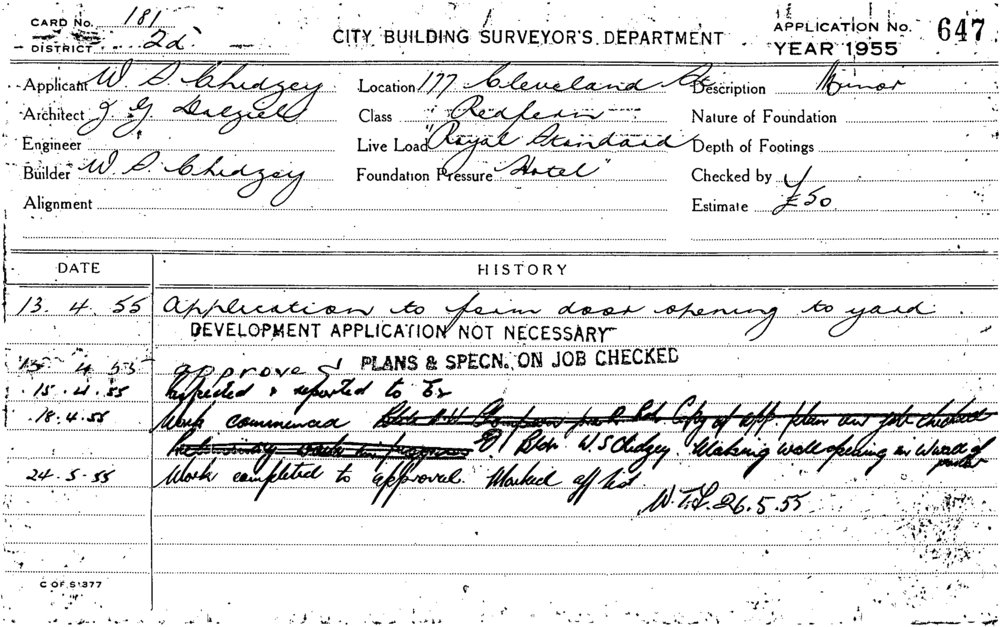 CARD No. 181
DISTRICT 2d
CITY BUILDING SURVEYOR'S DEPARTMENT
APPLICATION No. 647
YEAR 1955
Applicant W S Chidzey
Location 177 Cleveland St
Description Minor
Architect J G Dalziel
Class Redfern
Nature of Foundation
Engineer
Live Load "Royal Standard
Depth of Footings
Builder W. S. Chidzey
Foundation Pressure Hotel"
Checked by
Alignment
Estimate £50
DATE HISTORY
13. 4. 55 Application to form door opening to yard.
DEVELOPMENT APPLICATION NOT NECESSARY
PLANS & SPECN. ON JOB CHECKED
4 55 approved
15.4.55 Inspected & reported to
18.4.55 Work commenced Copy of app. plan on job checked
Preliminary work in progress Bldr W. S Chidzey. Making wall opening in
24.5.55 Work completed to approval. Marked off list
26.5.55
C OF S 377